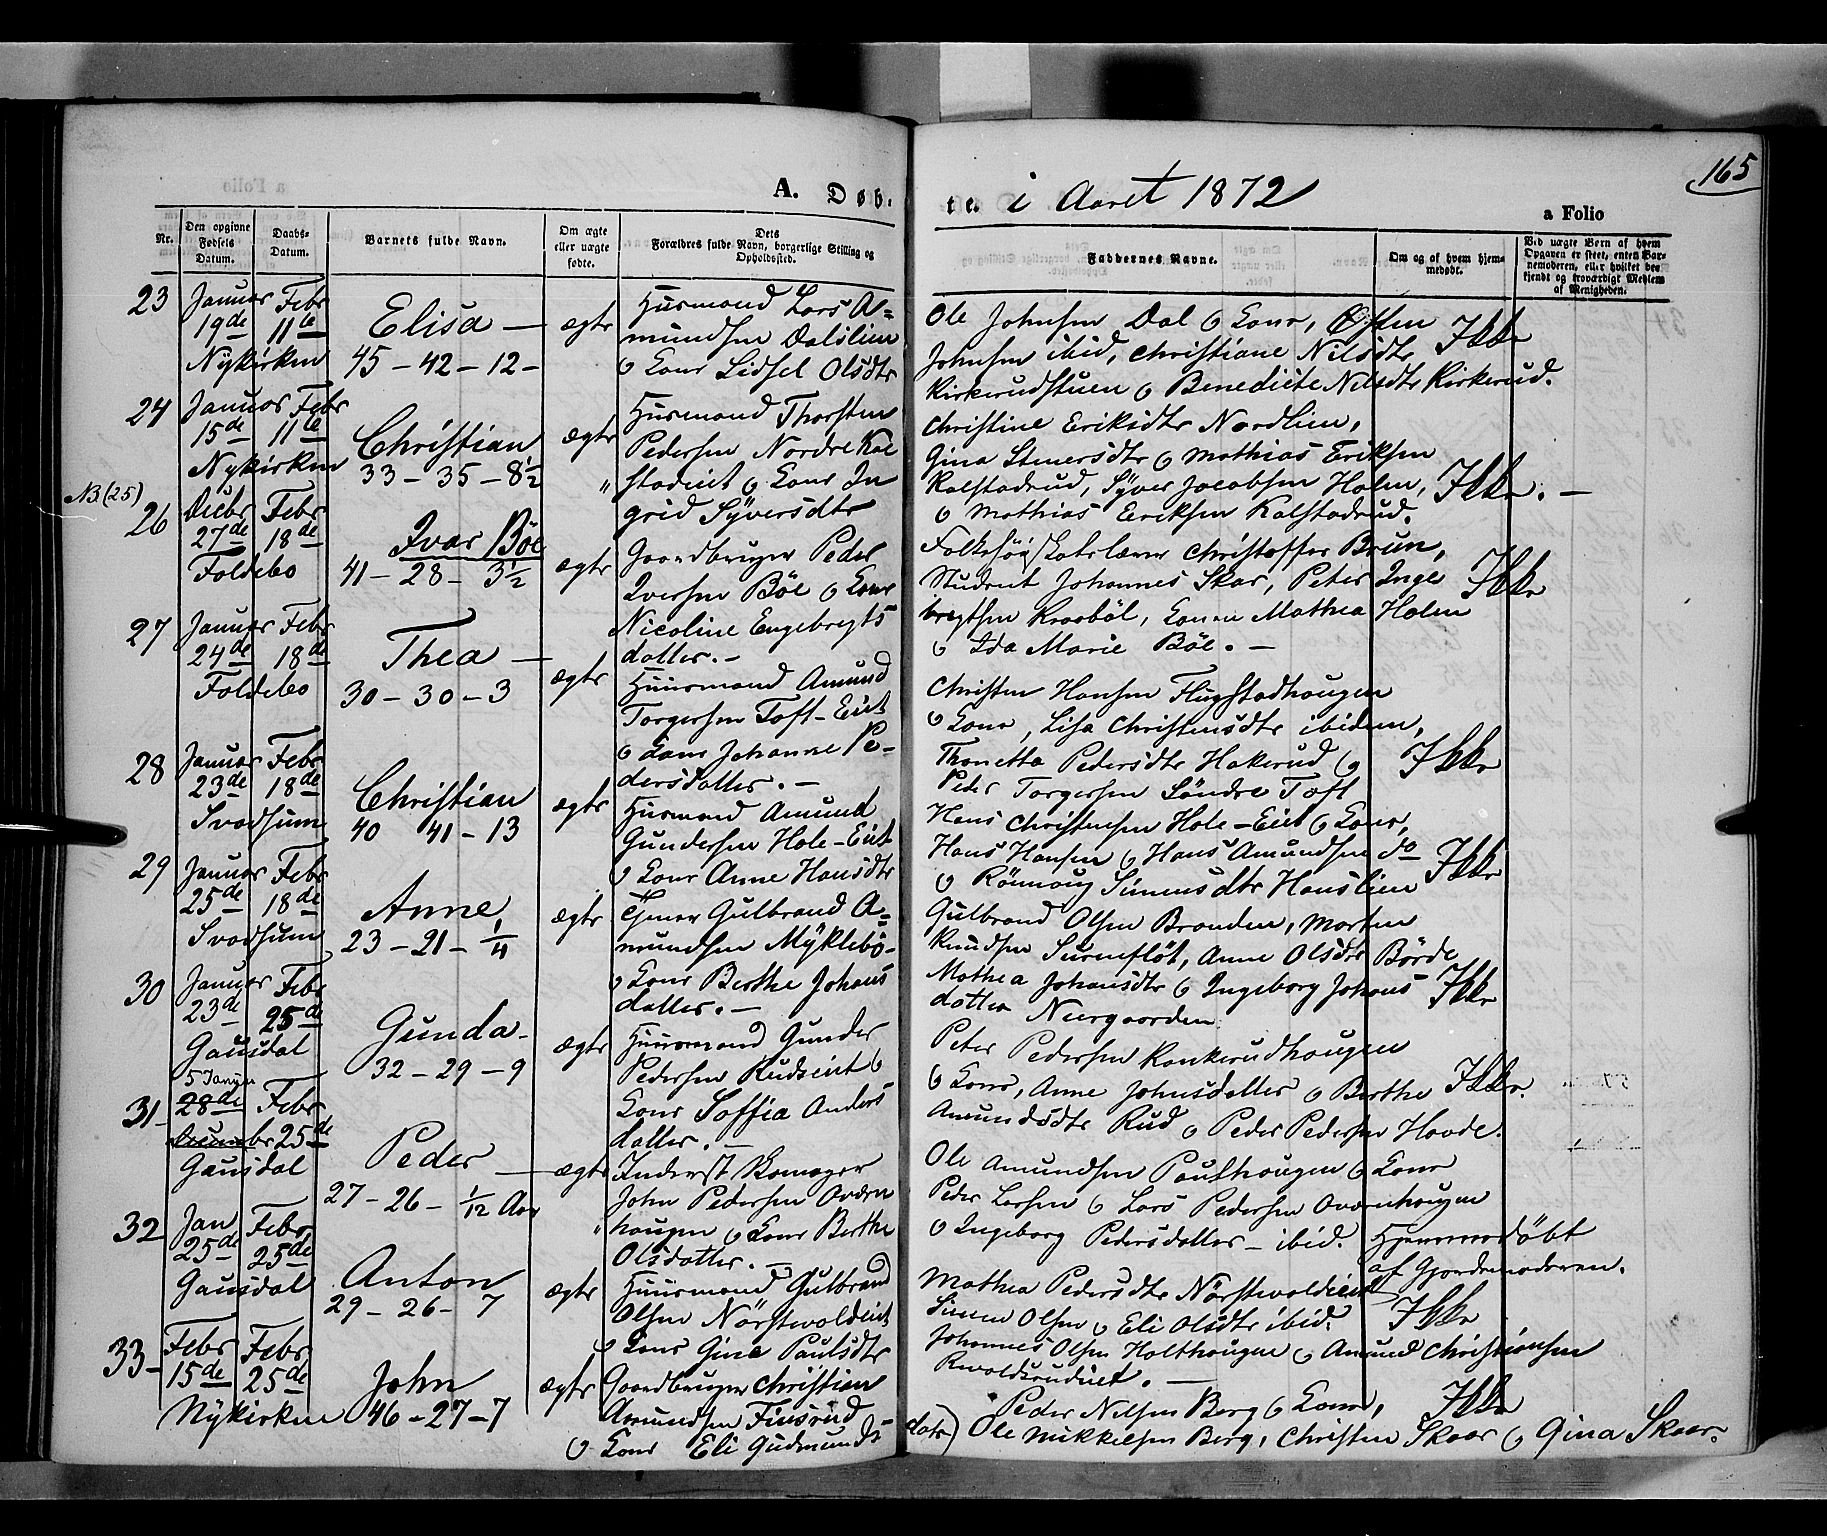 165
A. Døb-
te. i Aaret 1872
a Folio
Nr.
Den opgivne Fødsels Datum.
Daabs-Datum.
Barnets fulde Navn.
Om ægte eller uægte fødte.
Dets Forældres fulde Navn, borgerlige Stilling og Opholdssted.
Faddernes Navne.
Om og af hvem hjemmedøbt.
Ved uægte Børn af hvem Opgaven er skeet, enten Barnemoderen, eller hvilket bekjendt og troværdigt Medlem af Menigheden.
23
Januar Febr
19de 11te
Nykirken
Elisa —
45 - 42 - 12 -
ægte
Husmand Lars A=
mundsen Dalslien
o Kone Sidsel Olsdtr
Ole Johnsen Dal o Kone, Østen
Johnsen ibid, Christiane Nilsdtr
Kirkerudstuen o Benedicte Nilsdtr Kirkerud.
Ikke
24
Januar Febr
15de 11te
Nykirken
Christian
33 - 35 - 8½
ægte
"
Husmand Thorsten
Pedersen Nordre Kal
stadeiet o Kone In
grid Syversdtr
Christine Eriksdtr Nordlien,
Gina Steversdtr o Mathias Eriksen
Kalstadrud, Syver Jacobsen Holen,
o Mathias Eriksen Kalstadrud.
Ikke. —
NB (25)
26
Decbr Febr
27de 18de
Foldebo
Ivar Böe
41 - 28 - 3½
ægte
Gaardbruger Peder
Iversen Böe o Kone
Nicoline Engebregts
datter. —
Folkehöiskolelærer Christoffer Brun,
Student Johannes Skar, Peter Inge
bregtsen Kraaböl, Konen Mathea Holen
o Ida Marie Böe. —
Ikke
27
Januar Febr
24de 18de
Foldebo
Thea —
30 - 30 - 3
ægte
Huusmand Amund
Torgersen Toft-Eiet
o Kone Johanne Pe-
dersdatter. —
Christen Hansen Flugstadhougen
o Kone, Lisa Christensdtr ibidem,
Thonetta Pedersdtr Hakerud o
Peder Torgersen Söndre Toft
Ikke
28
Januar Febr
23de 18de
Svadsum
Christian
40 41 - 13
ægte
Husmand Amund
Gundersen Hole-Eiet
o Kone Anne Hansdtr
Hans Christensen Hole-Eiet o Kone,
Hans Hansen o Hans Amundsen do
o Rönnoug Simensdtr Hanslien
Ikke
29
Januar Febr
25de 18de
Svadsum
Anne
23 - 21 - ¼
ægte
Gulbrand A=
mundsen Myklebö-
o Kone Berthe Johans
datter. —
Gulbrand Olsen Branden, Morten
Knudsen Surneflöt, Anne Olsdtr Börde
Mathea Johansdtr o Ingeborg Johans
datter Neergaarden.
Ikke
30
Januar Febr
23de 25de
Gausdal
Gunda -
32 - 29 - 9
ægte
Huusmand Gunder
Pedersen Rudseiet o
Kone Soffia Anders
datter. —
Peter Pedersen Kankerudhougen
o Kone, Anne Johnsdatter o Berthe
Amundsdtr Rud o Peder Pedersen Hovde.
Ikke.
31 -
5 Januar
28de Febr
Decembr 25de
Gausdal
Peder —
27 - 26 - 1/12 Aar
ægte
"
Inderst Skomager
John Pedersen Ovren
hougen o Kone Berthe
Olsdatter. —
Ole Amundsen Poulhougen o Kone
Peder Larsen o Lars Pedersen Ovrenhougen
o Ingeborg Pedersdatter - ibid.
Hjemmedöbt
af Gjordemoderen.
32
Jan Febr
25de 25de
Gausdal
Anton
29 - 26 - 7
ægte
Huusmand Gulbrand
Olsen Nörstevoldeiet
o Kone Gina Paulsdtr
Mathea Pedersdtr Nörstevoldeiet
Simen Olsen o Eli Olsdtr ibid.
Johannes Olsen Holthougen o Amund Christiansen
Ikke
33 -
Febr Febr
15de 25de
Nykirken
John
46 - 27 - 7
ægte
Gaardbruger Christian
Amundsen Finsrud
o Kone Eli Gudmunds-
datr) Peder Nilsen Berg o Kone,
Ole Mikkelsen Berg, Christen Skaar o Gina Skaar.
Ikke